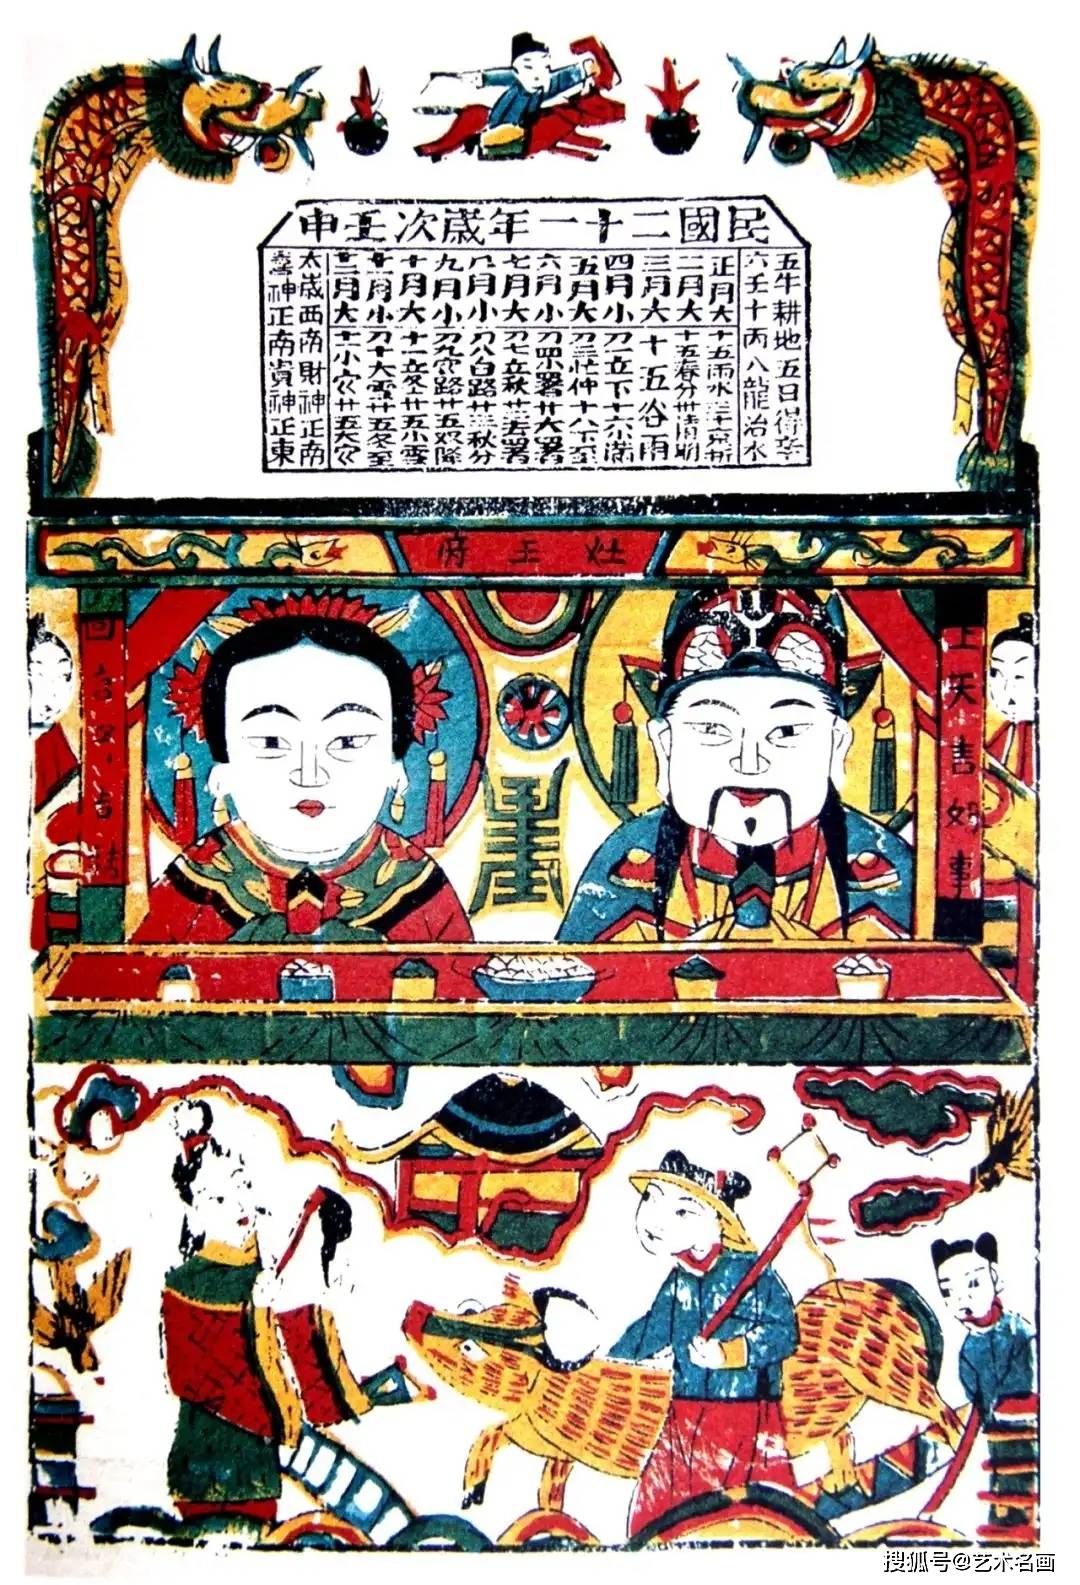 民國二十一年歲次壬申
五牛耕地五日得辛
六壬十丙八龍治水
正月大十五雨水三十京折
二月大十五春分卅清明
三月大十五谷雨
四月小刀一立下十六小滿
五月大刀三忙仲十八下至
六月小刀四小署廿大署
七月大刀七立秋廿三去署
八月小刀八白路廿三秋分
九月小刀九穴路廿五双降
十月大十一立冬廿五小雪
十一月小刀十大雪廿五冬至
十二月大十一小穴廿五大穴
太歲西南財神正南
喜神正南貴神正東
灶王府
上天言好事
回
吉
搜狐号@艺术名画